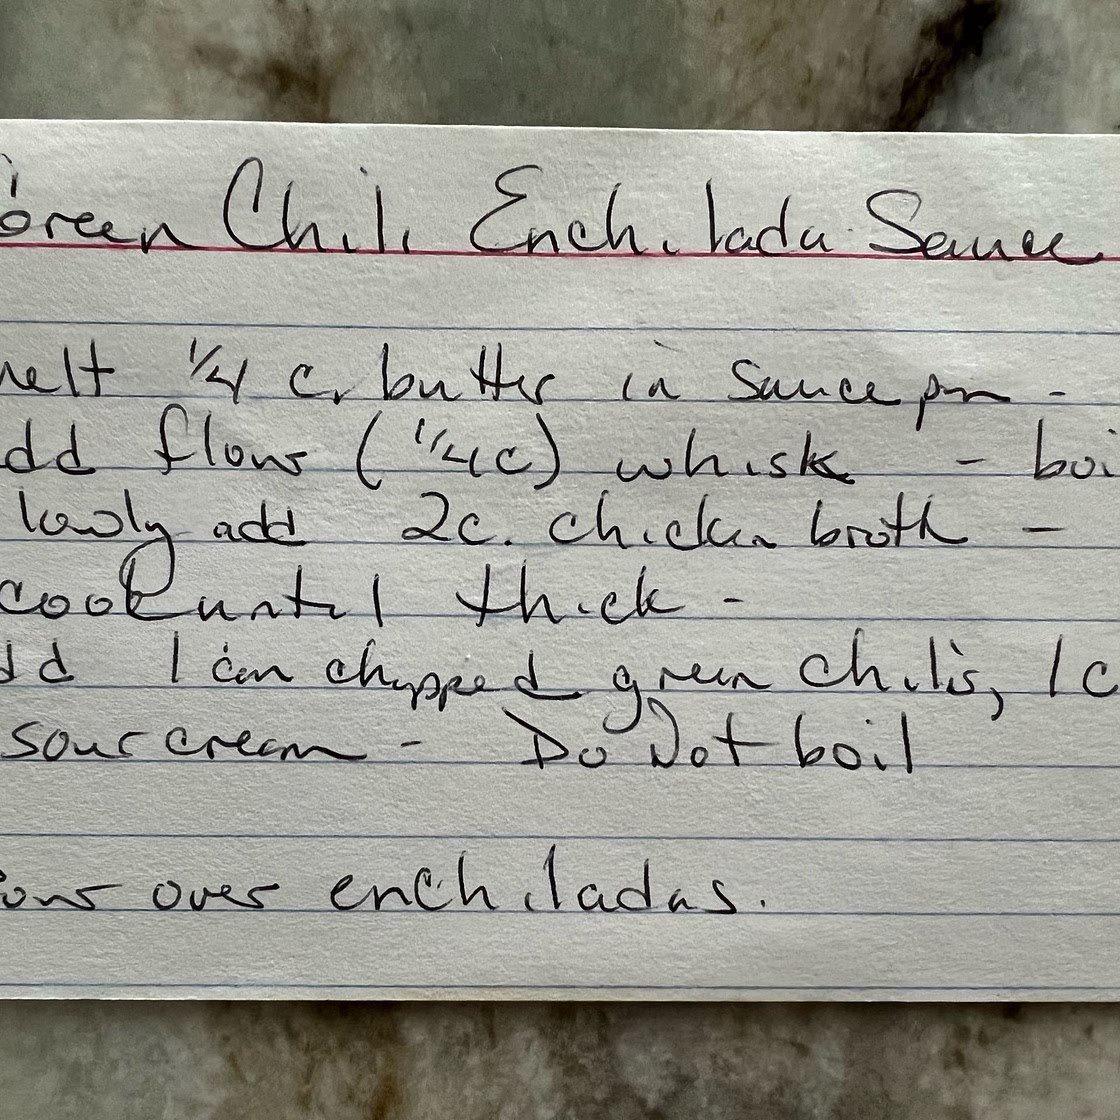 Green Chili Enchilada Sauce
melt 1/4 c. butter in sauce pan -
dd flour (1/4 c) whisk - boi
lowly add 2c. chicken broth -
cook until thick -
dd 1 can chopped green chilis, 1 c
sour cream - Do Not boil
our over enchiladas.